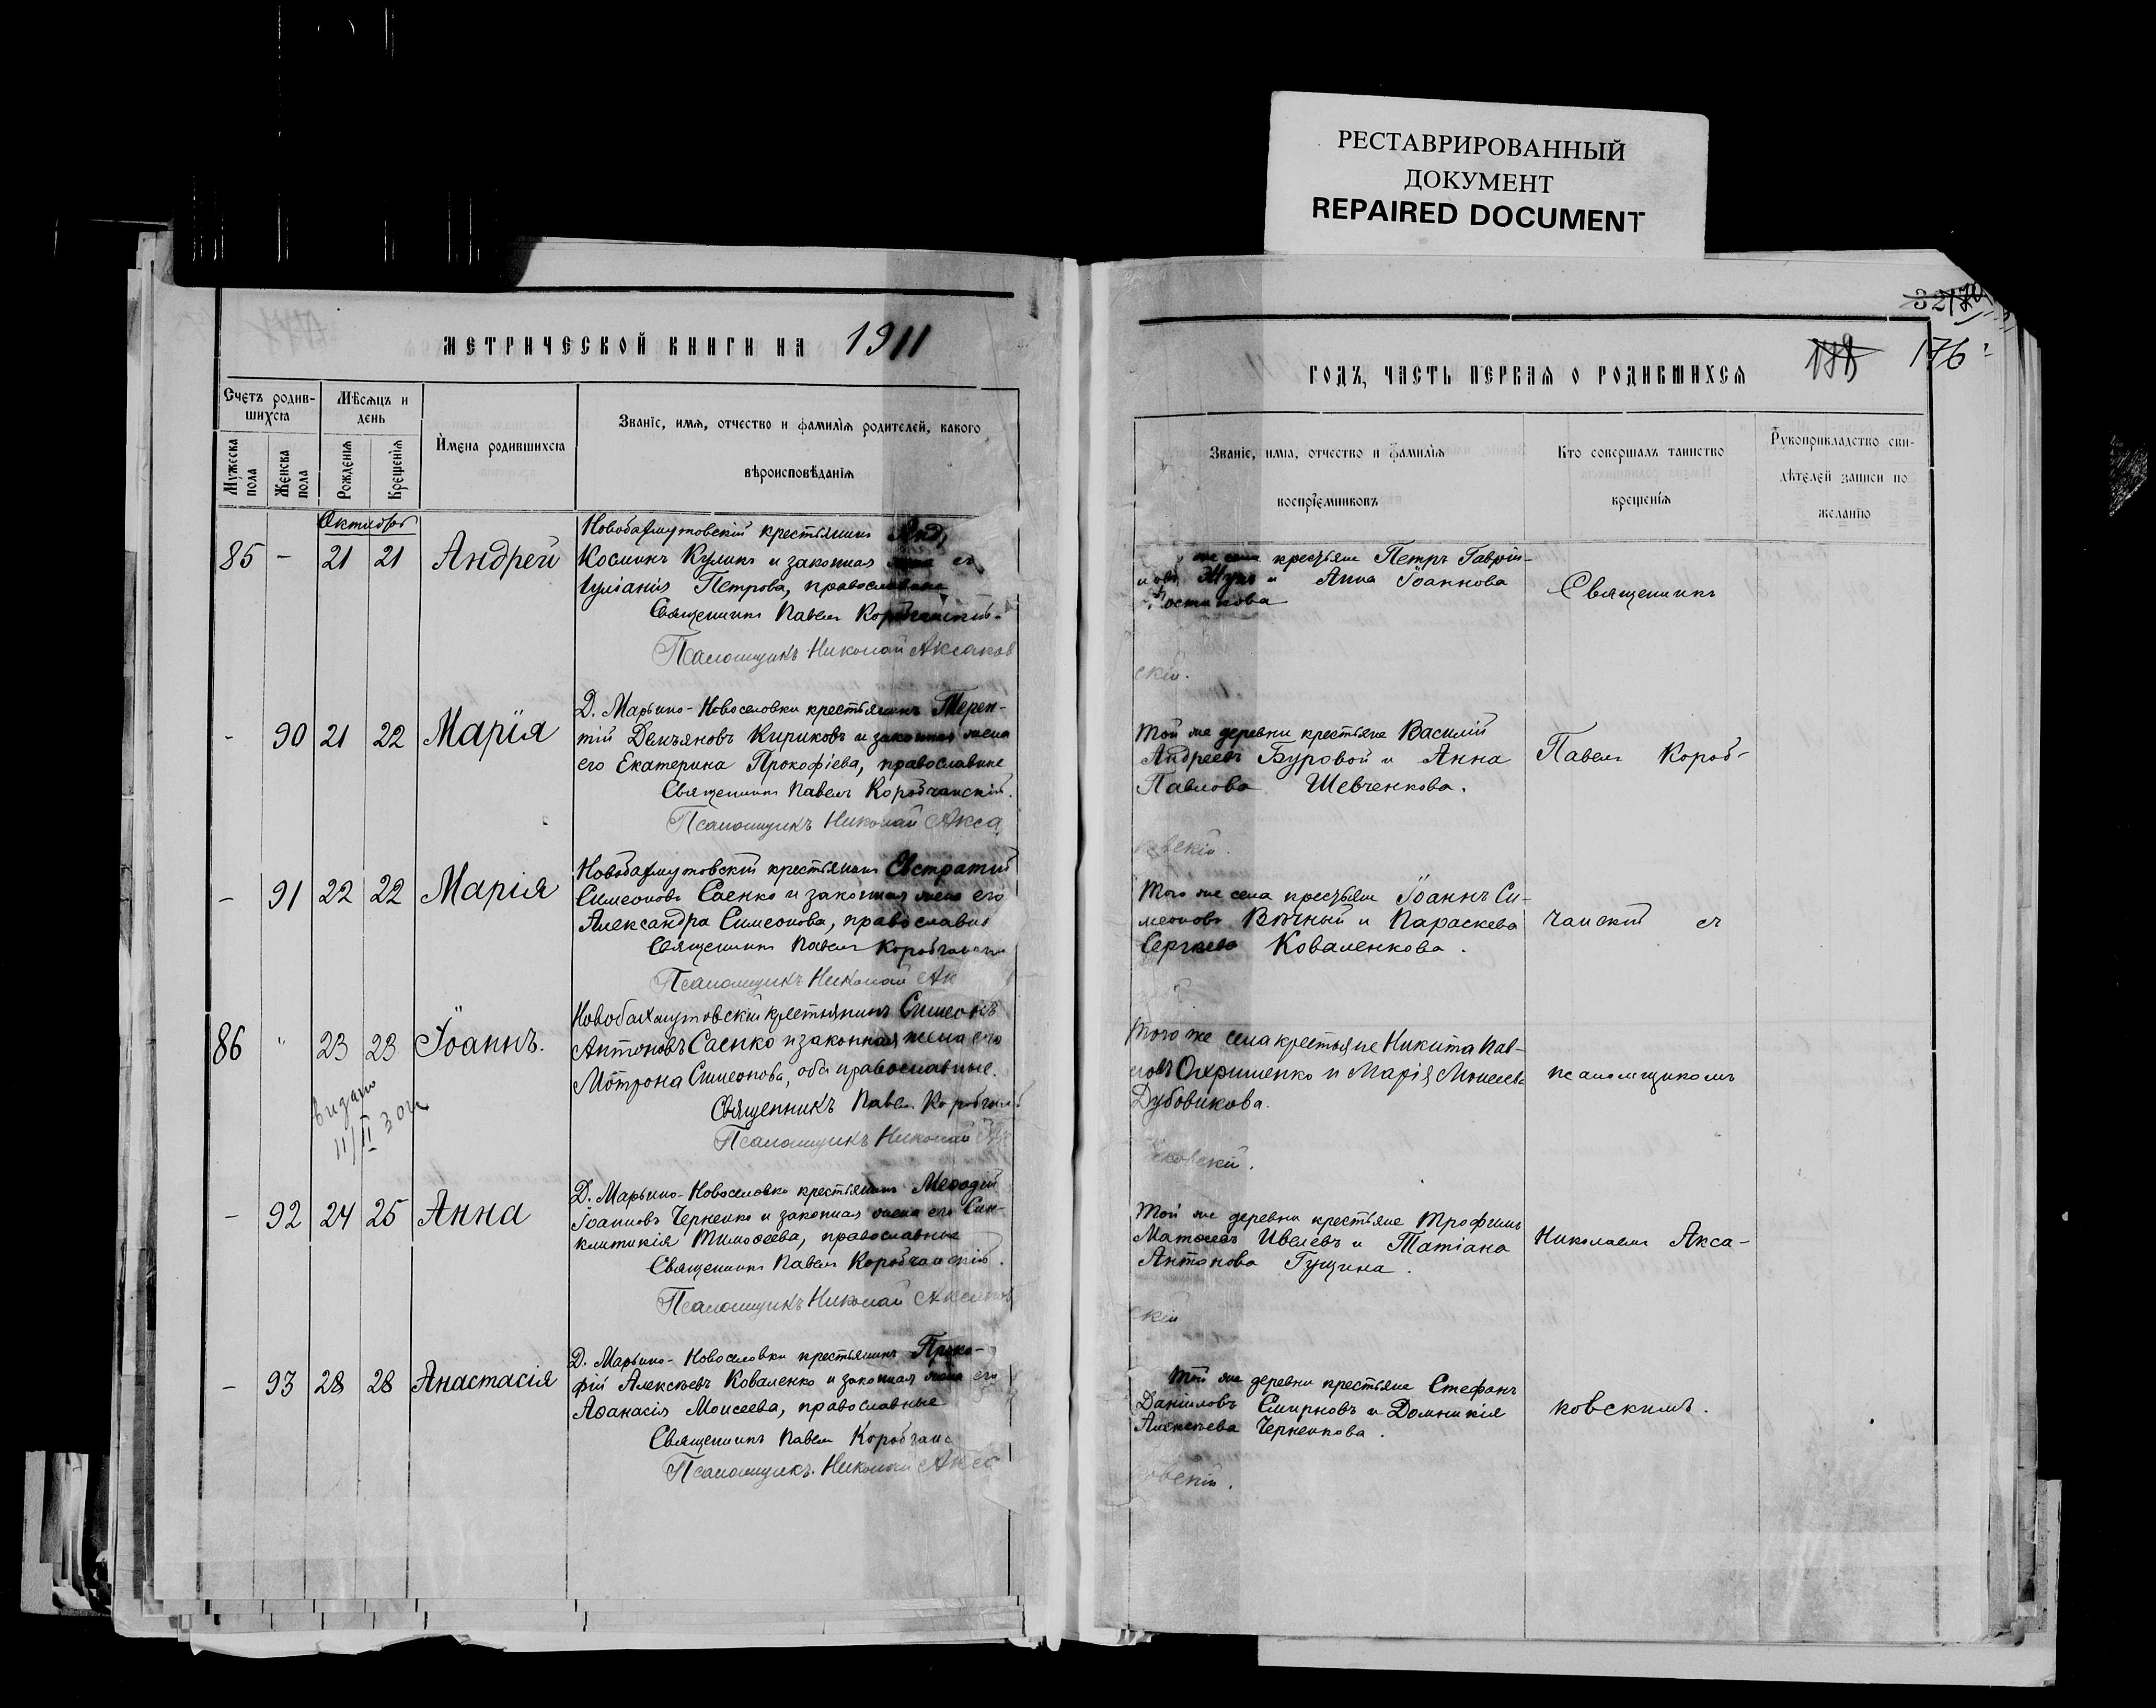 РЕСТАВРИРОВАННЫЙ
ДОКУМЕНТ
REPAIRED DOCUMENT
МЕТРИЧЕСКОЙ КНИГИ НА 1911
Счетъ родив-
шихсѧ
Мѣсѧцъ и
день
Имена родившихсѧ
Званіе, имѧ, отчество и фамиліѧ родителей, какого
вѣроисповѣданіѧ
Мужеска
пола
Женска
пола
Рожденіѧ
Крещеніѧ
Октябрь
85 - 21 21 Андрей
Новобахмутовскій крестьянинъ
Косминъ Куликъ и законная жена его
Іуліанія Петрова, православные
Священникъ Павелъ Коробчанскій.
Псаломщикъ Николай Аксаков
- 90 21 22 Марія
Д. Марьино-Новоселовки крестьянинъ Терен-
тій Демьяновъ Кириковъ и законная жена
его Екатерина Прокофіева, православные
Священникъ Павелъ Коробчанскій.
Псаломщикъ Николай Акса
- 91 22 22 Марія
Новобахмутовскій крестьянинъ Евстратій
Симеоновъ Саенко и законная жена его
Александра Симеонова, православные
Священникъ Павелъ Коробчанскій
Псаломщикъ Николай Ак
86 " 23 23 Іоаннъ.
Новобахмутовскій крестьянинъ Симеонъ
Антоновъ Саенко и законная жена его
Мотрона Симеонова, оба православные.
Священникъ Павелъ Коробчанскій
Псаломщикъ Николай
Видано
11/II 30 г.
- 92 24 25 Анна
Д. Марьино-Новоселовки крестьянинъ Меѳодій
Іоанновъ Черненко и законная жена его Син-
клитикія Тимоѳеева, православные
Священникъ Павелъ Коробчанскій.
Псаломщикъ Николай Аксаков
- 93 28 28 Анастасія
Д. Марьино-Новоселовки крестьянинъ Проко-
фій Алексѣевъ Коваленко и законная жена его
Аѳанасія Моисеева, православные
Священникъ Павелъ Коробчанс
Псаломщикъ Николай Акса
176
ГОДЪ, ЧАСТЬ ПЕРВАѦ О РОДИВШИХСѦ
Званіе, имѧ, отчество и фамиліѧ
воспріемниковъ
Кто совершалъ таинство
крещеніѧ
Рукоприкладство сви-
дѣтелей записи по
желанію
же села крестьяне Петръ Гавріи-
ловъ Жукъ и Анна Іоаннова
скій.
Той же деревни крестьяне Василій
Андреевъ Буровой и Анна
Павлова Шевченкова.
овскій.
Того же села крестьяне Іоаннъ Си-
меоновъ Вѣчный и Параскева
Сергѣева Коваленкова.
Того же села крестьяне Никита Пав-
ловъ Охрименко и Марія Моисеева
Дубовикова.
аковскій.
Той же деревни крестьяне Трофимъ
Матѳеевъ Ивлевъ и Татіана
Антонова Гущина.
скій
Той же деревни крестьяне Стефанъ
Даніиловъ Смирновъ и Домникія
Алексѣева Черненкова.
овскій.
Священникъ
Павелъ Короб-
чанскій съ
псаломщикомъ
Николаемъ Акса-
ковскимъ.